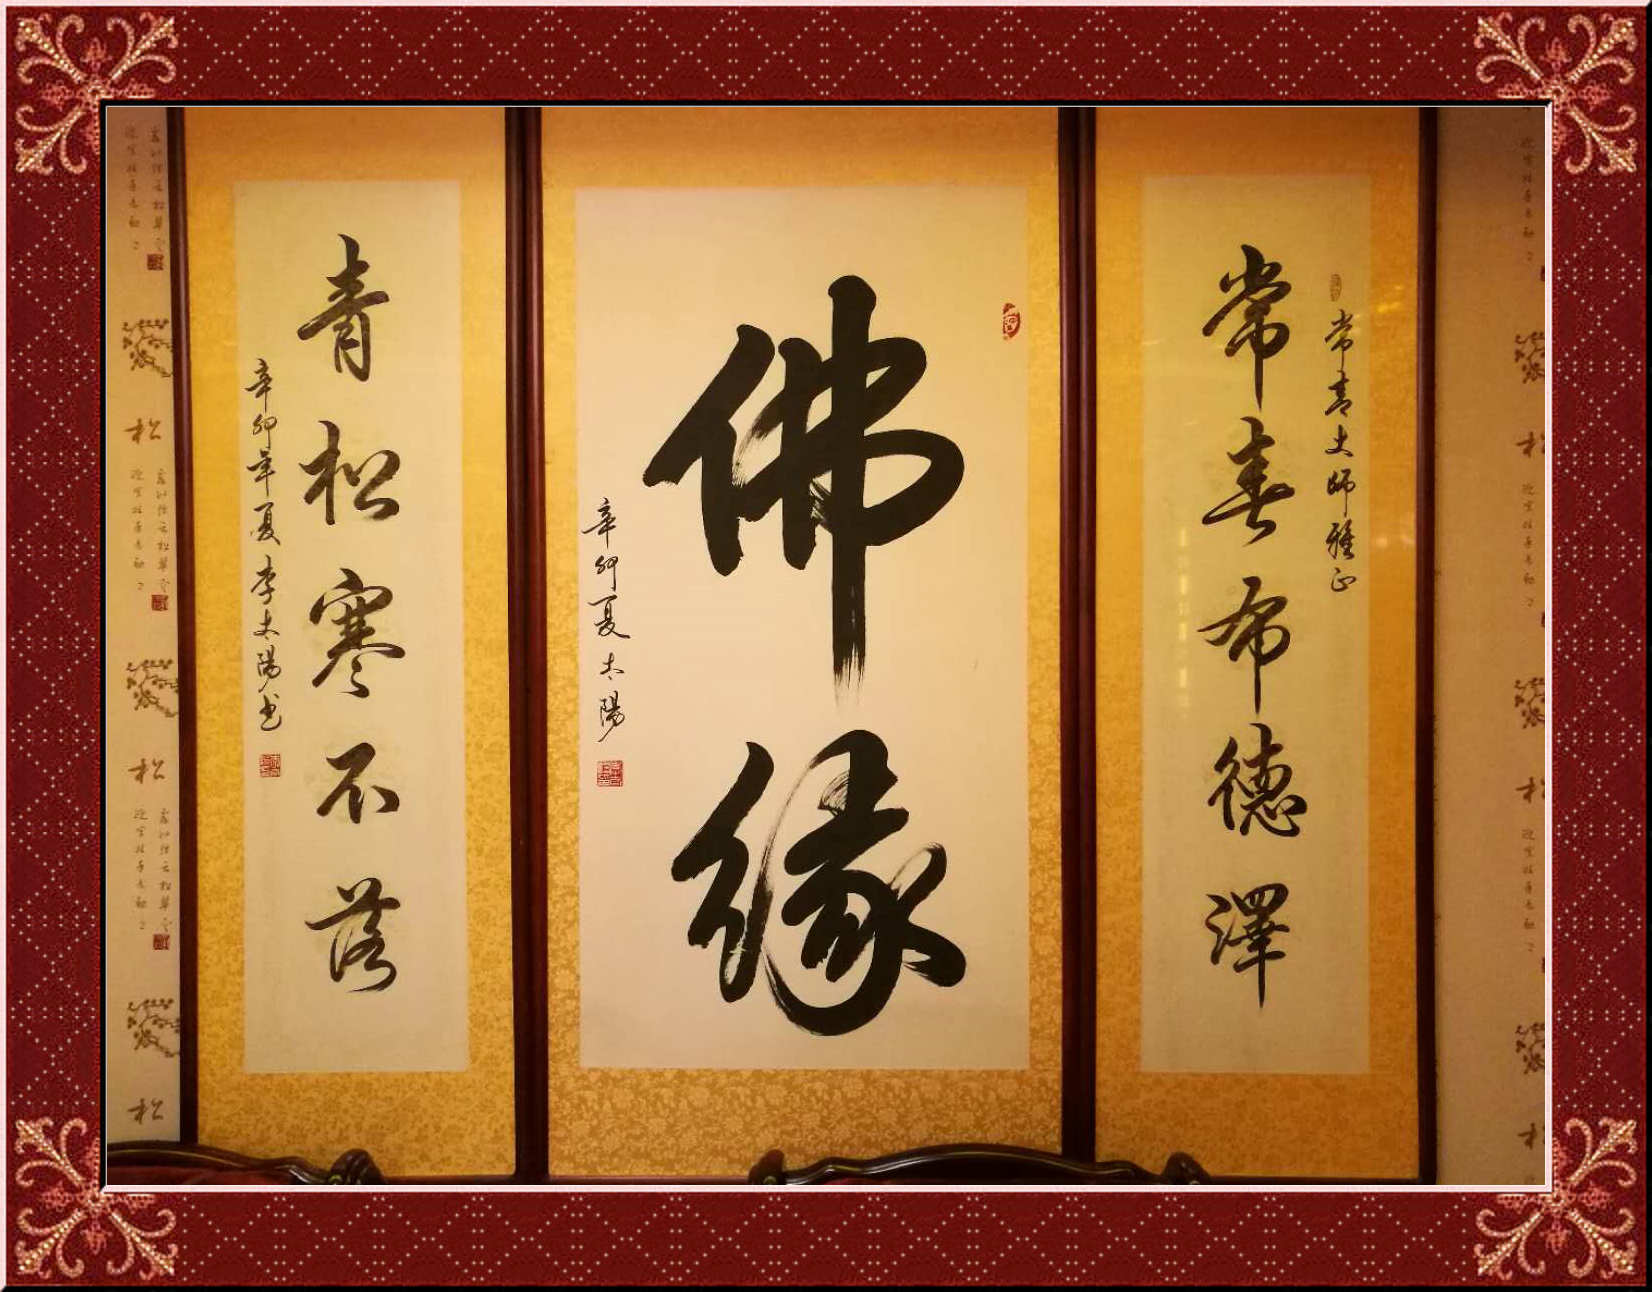 常青大師雅正
常春布德澤
佛緣
辛卯夏太陽
青松寒不落
辛卯年夏李太陽书
松
松
松
松
松
松